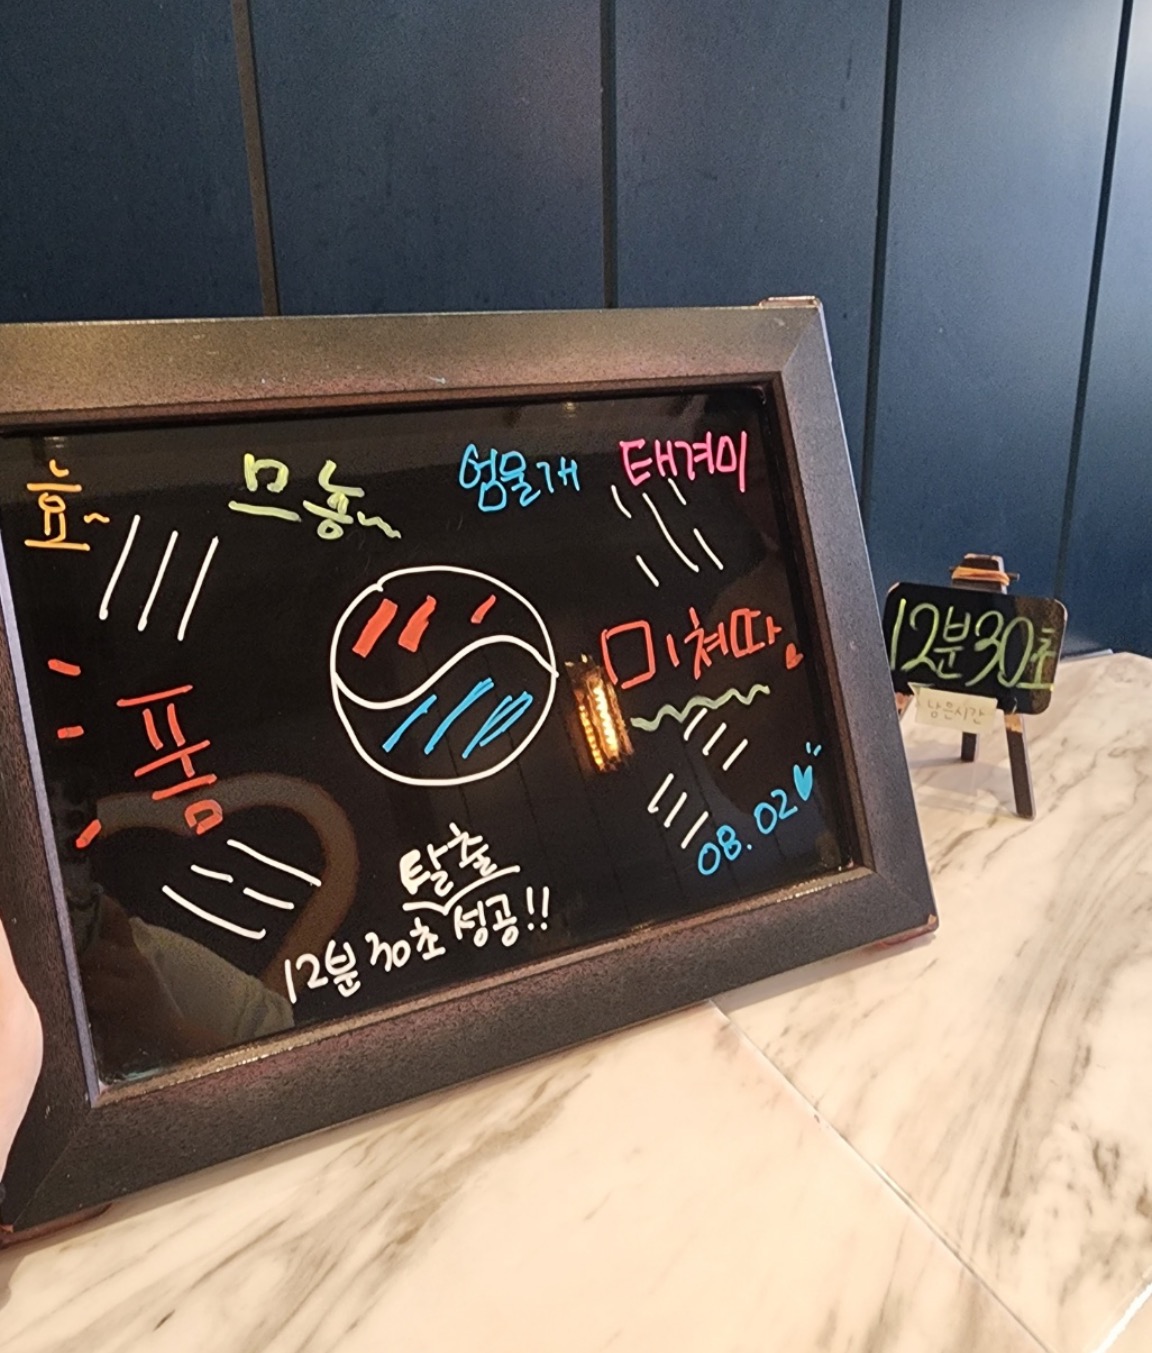 효~
므흥~
엄물개
태겨미
미쳐따
퐁
08.02
탈출
12분 30초 성공!!
12분30초
남은시간